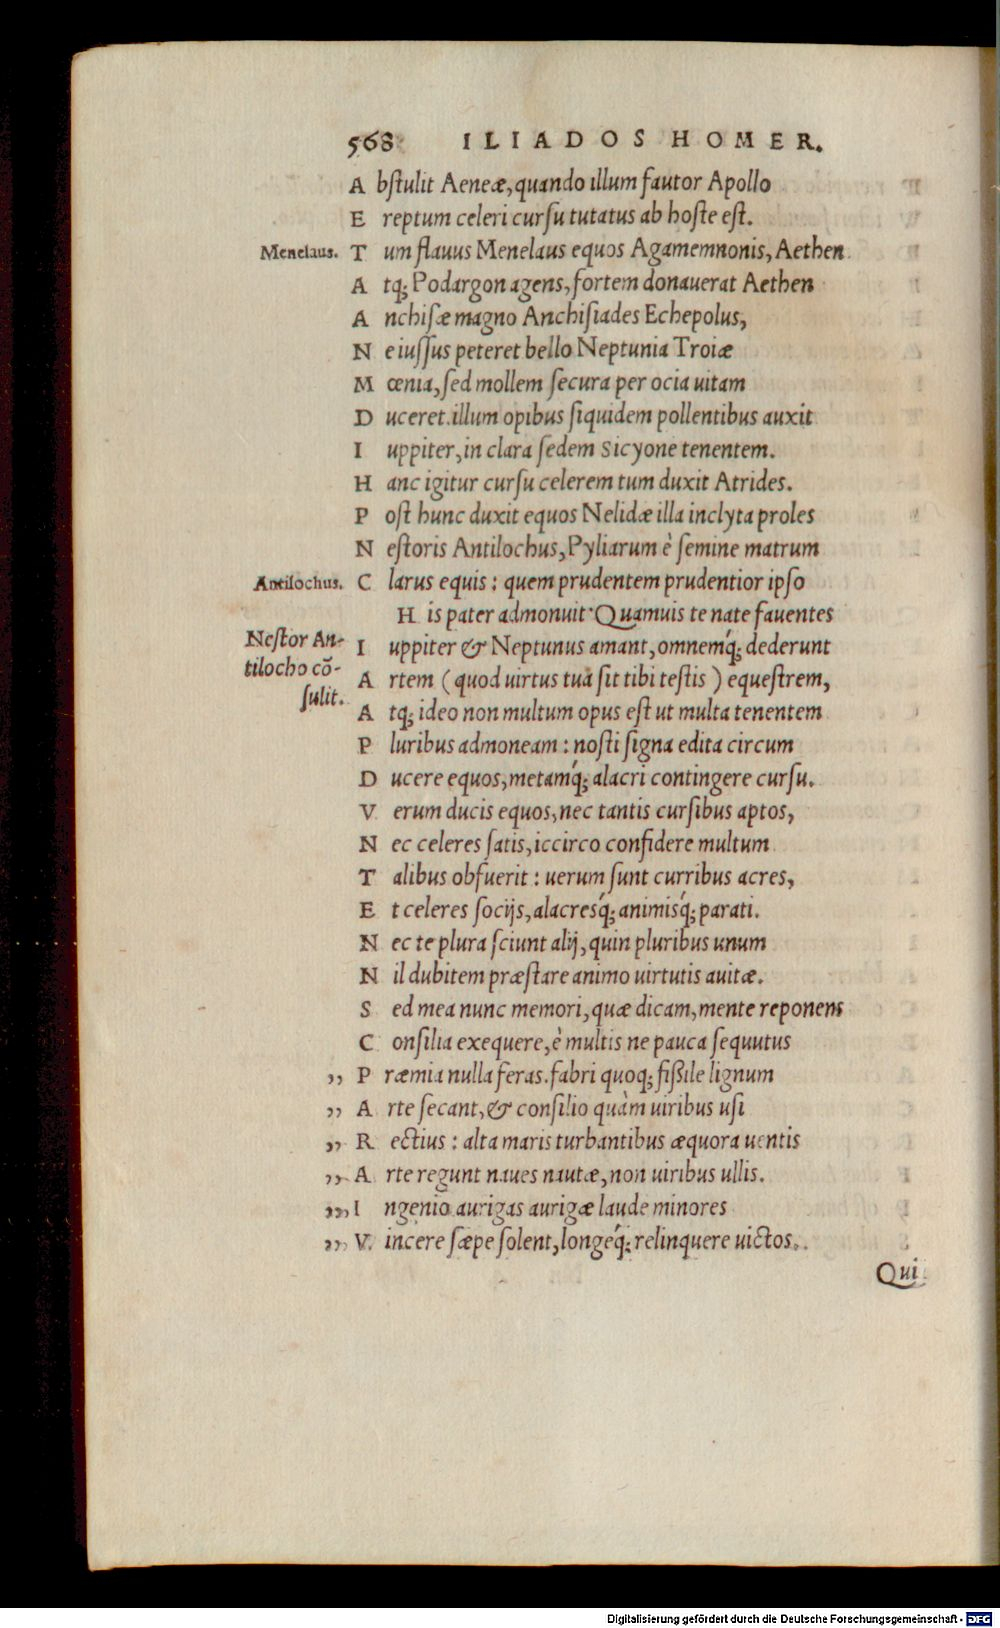 568 ILIADOS HOMER.
Abstulit Aeneæ, quando illum fautor Apollo
Ereptum celeri cursu tutatus ab hoste est.
Menelaus. Tum flauus Menelaus equos Agamemnonis, Aethen
Atq; Podargon agens, fortem donauerat Aethen
Anchisæ magno Anchisiades Echepolus,
Ne iussus peteret bello Neptunia Troiæ
Mœnia, sed mollem secura per ocia uitam
Duceret. illum opibus siquidem pollentibus auxit
Iuppiter, in clara sedem Sicyone tenentem.
Hanc igitur cursu celerem tum duxit Atrides.
Post hunc duxit equos Nelidæ illa inclyta proles
Nestoris Antilochus, Pyliarum è semine matrum
Antilochus. Clarus equis: quem prudentem prudentior ipso
His pater admonuit Quamuis te nate fauentes
Nestor An-
Iuppiter & Neptunus amant, omnemq́; dederunt
tilocho cō-
Artem (quod virtus tua sit tibi testis) equestrem,
sulit.
Atq; ideo non multum opus est ut multa tenentem
Pluribus admoneam: nosti signa edita circum
Ducere equos, metamq́; alacri contingere cursu.
Verum ducis equos, nec tantis cursibus aptos,
Nec celeres satis, iccirco confidere multum
Talibus obfuerit: uerum sunt curribus acres,
Et celeres socijs, alacresq́; animisq́; parati.
Nec te plura sciunt alij, quin pluribus unum
Nil dubitem præstare animo uirtutis auitæ.
Sed mea nunc memori, quæ dicam, mente reponens
Consilia exequere, è multis ne pauca sequutus
,, Præmia nulla feras. fabri quoq; fissile lignum
,, Arte secant, & consilio quàm uiribus usi
,, Rectius: alta maris turbantibus æquora uentis
,, Arte regunt naues nautæ, non uiribus ullis.
,, Ingenio aurigas aurigæ laude minores
,, Vincere sæpe solent, longeq́; relinquere uictos.
Qui
Digitalisierung gefördert durch die Deutsche Forschungsgemeinschaft - DFG